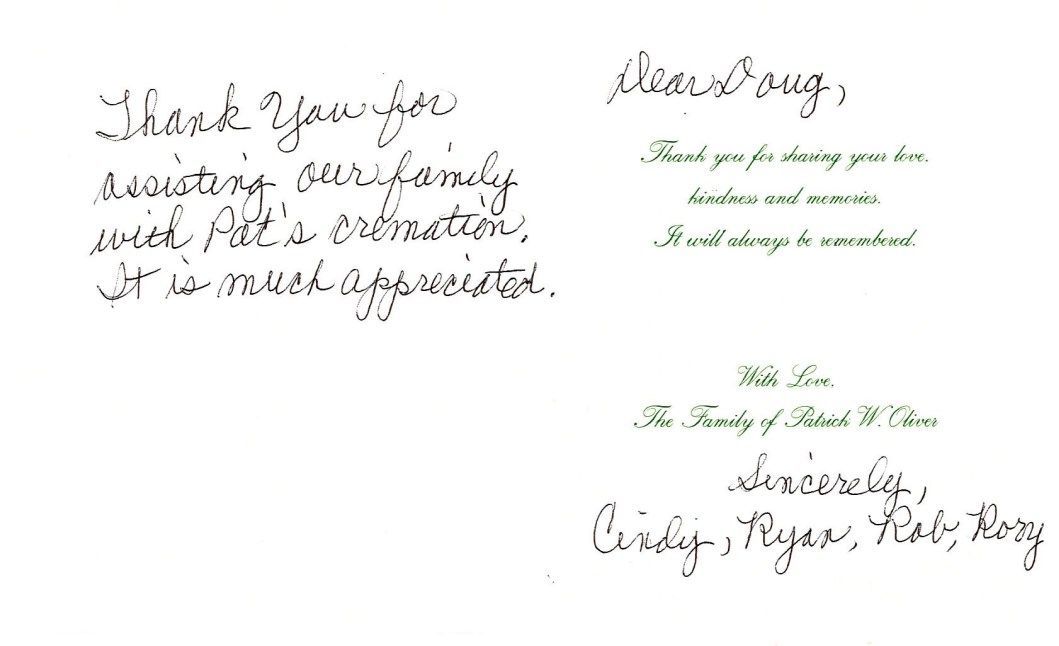 Thank You for
assisting our family
with Pat's cremation.
It is much appreciated.
Dear Doug,
Thank you for sharing your love,
kindness and memories.
It will always be remembered.
With Love,
The Family of Patrick W. Oliver
Sincerely,
Cindy, Ryan, Rob, Rory